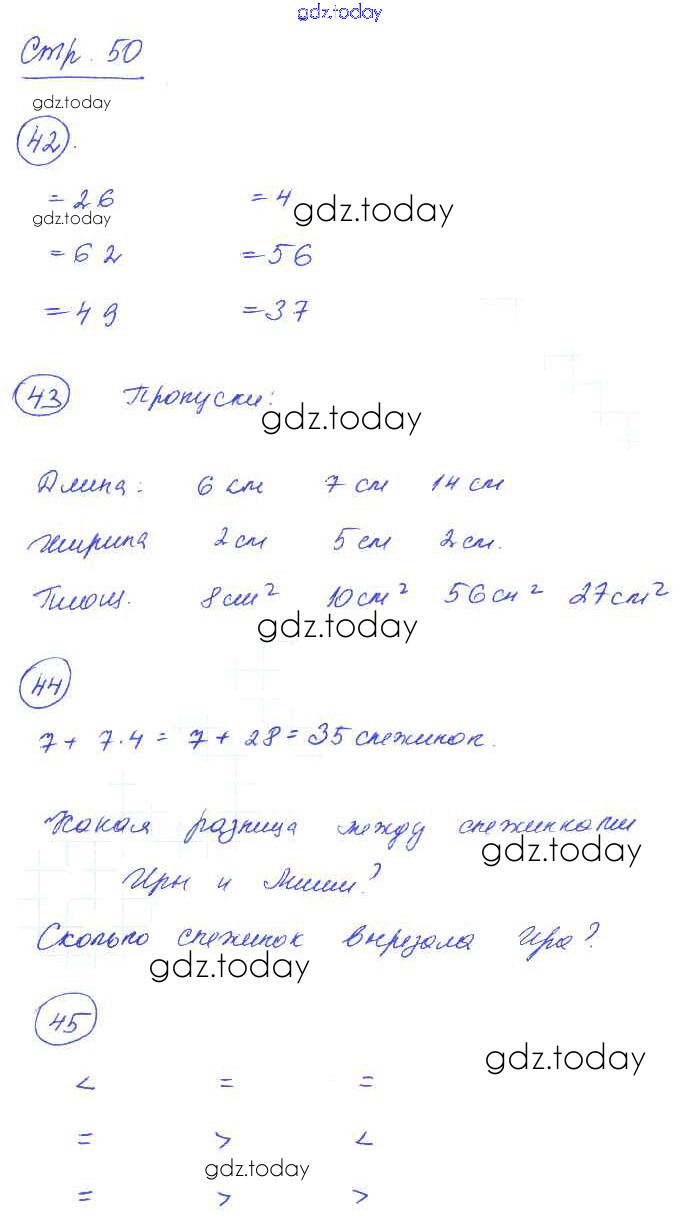 gdz.today
Стр. 50
gdz.today
42.
= 26 = 4
gdz.today gdz.today
= 62 = 56
= 49 = 37
43 Пропуски:
gdz.today
Длина: 6 см 7 см 14 см
ширина 2 см 5 см 2 см.
Площ. 8 см² 10 см² 56 см² 27 см²
gdz.today
44
7 + 7·4 = 7 + 28 = 35 снежинок.
Какая разница между снежинками
gdz.today
Иры и Миши?
Сколько снежинок вырезала Ира?
gdz.today
45
gdz.today
< = =
= > <
gdz.today
= > >